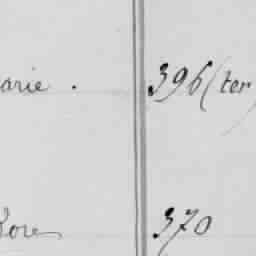 arie . 396 (ter
Rore 370